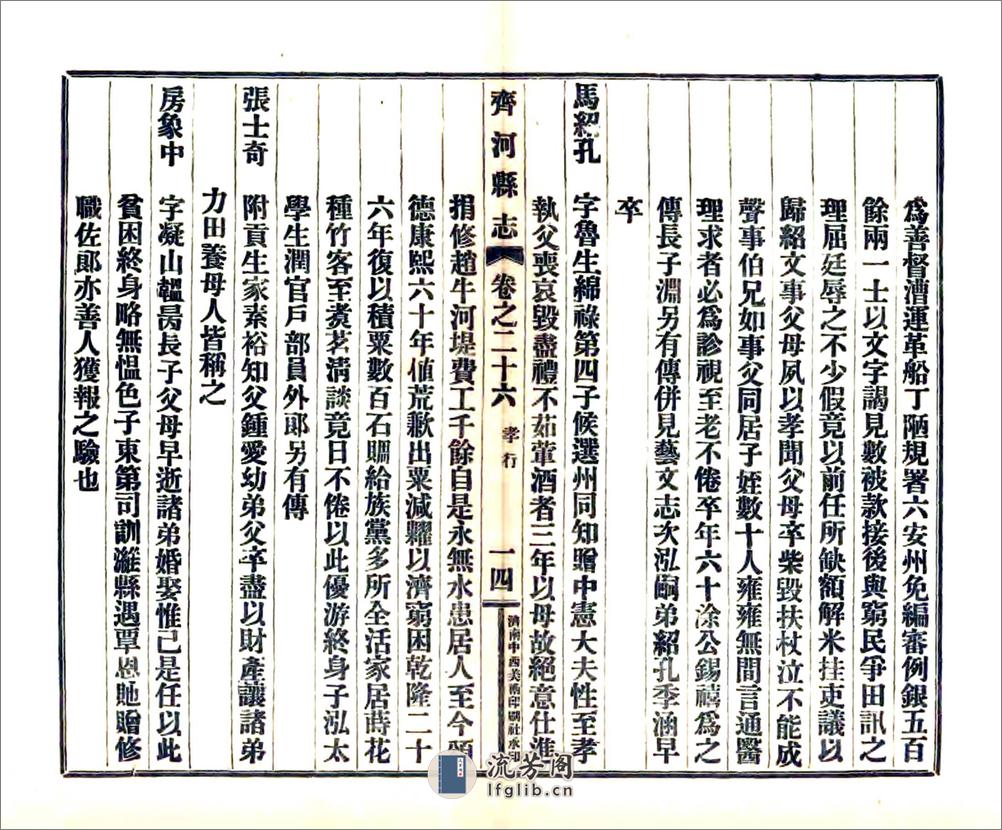 爲善督漕運革船丁陋規署六安州免編審例銀五百
餘兩一士以文字謁見數被款接後與窮民爭田訊之
理屈廷辱之不少假竟以前任所缺額解米挂吏議以
歸紹文事父母夙以孝聞父母卒柴毀扶杖泣不能成
聲事伯兄如事父同居子姪數十人雍雍無間言通醫
理求者必爲診視至老不倦卒年六十涂公錫禧爲之
傳長子淵另有傳併見藝文志次泓嗣弟紹孔季涵早
卒
馬紹孔 字魯生綿祿第四子候選州同知贈中憲大夫性至孝
執父喪哀毀盡禮不茹葷酒者三年以母故絕意仕進
齊河縣志 卷之二十六 孝行 一四 濟南中西美術印刷社承印
捐修趙牛河堤費工千餘自是永無水患居人至今頌
德康熙六十年値荒歉出粟減糶以濟窮困乾隆二十
六年復以積粟數百石賙給族黨多所全活家居蒔花
種竹客至煮茗淸談竟日不倦以此優游終身子泓太
學生潤官戶部員外郞另有傳
張士奇 附貢生家素裕知父鍾愛幼弟父卒盡以財產讓諸弟
力田養母人皆稱之
房象中 字凝山韞昺長子父母早逝諸弟婚娶惟己是任以此
貧困終身略無慍色子東第司訓濰縣遇覃恩貤贈修
職佐郞亦善人獲報之驗也
流芳阁
lfglib.cn